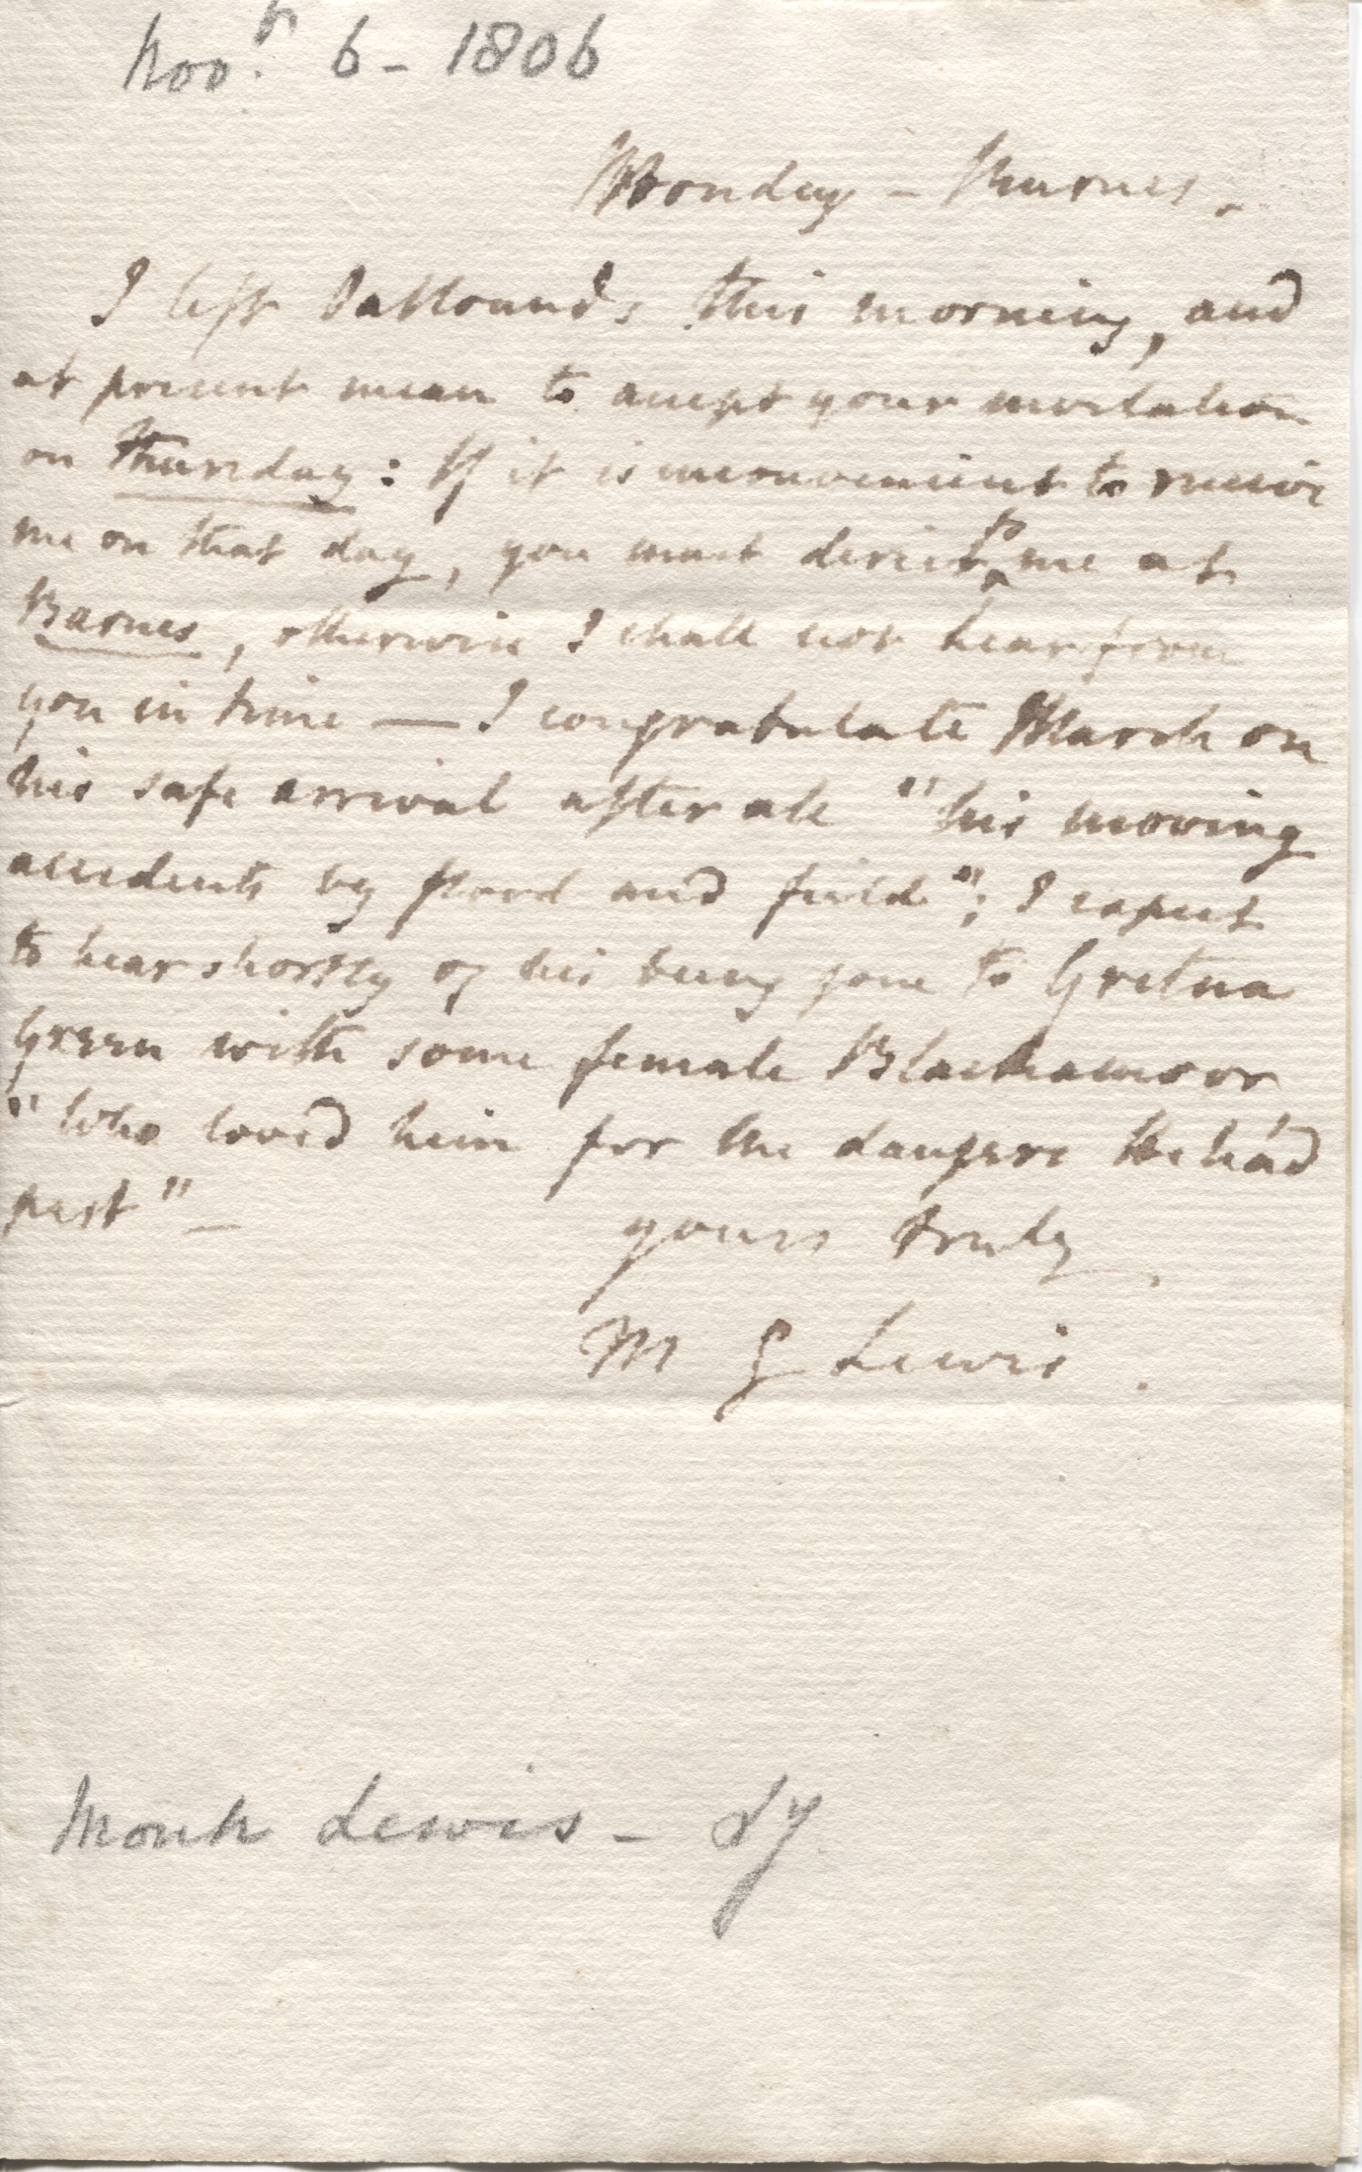 Novr. 6 - 1806
Monday - Barnes.
I left Oatlands this morning, and
at present mean to accept your invitation
on Thursday: If it is inconvenient to receive
me on that day, you must direct to me at
Barnes, otherwise I shall not hear from
you in time — I congratulate March on
his safe arrival after all "his moving
accidents by flood and field"; I expect
to hear shortly of his being gone to Gretna
Green with some female Blackamoor
"who lov'd him for the dangers He had
past" -
yours truly
M G Lewis.
Monk Lewis -